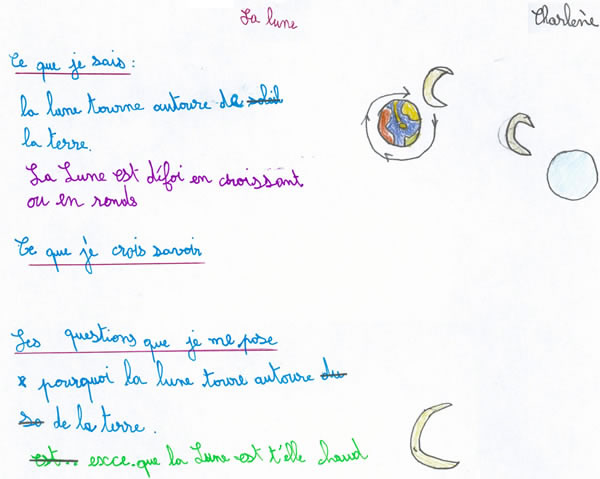 La lune
Charlène
Ce que je sais :
la lune tourne autoure de soleil
la terre.
La Lune est défoi en croissant
ou en ronds
Ce que j'e crois savoir
Les questions que je me pose
* pourquoi la lune toure autoure du
so de la terre.
est... esxce.que la Lune est t'elle chaud